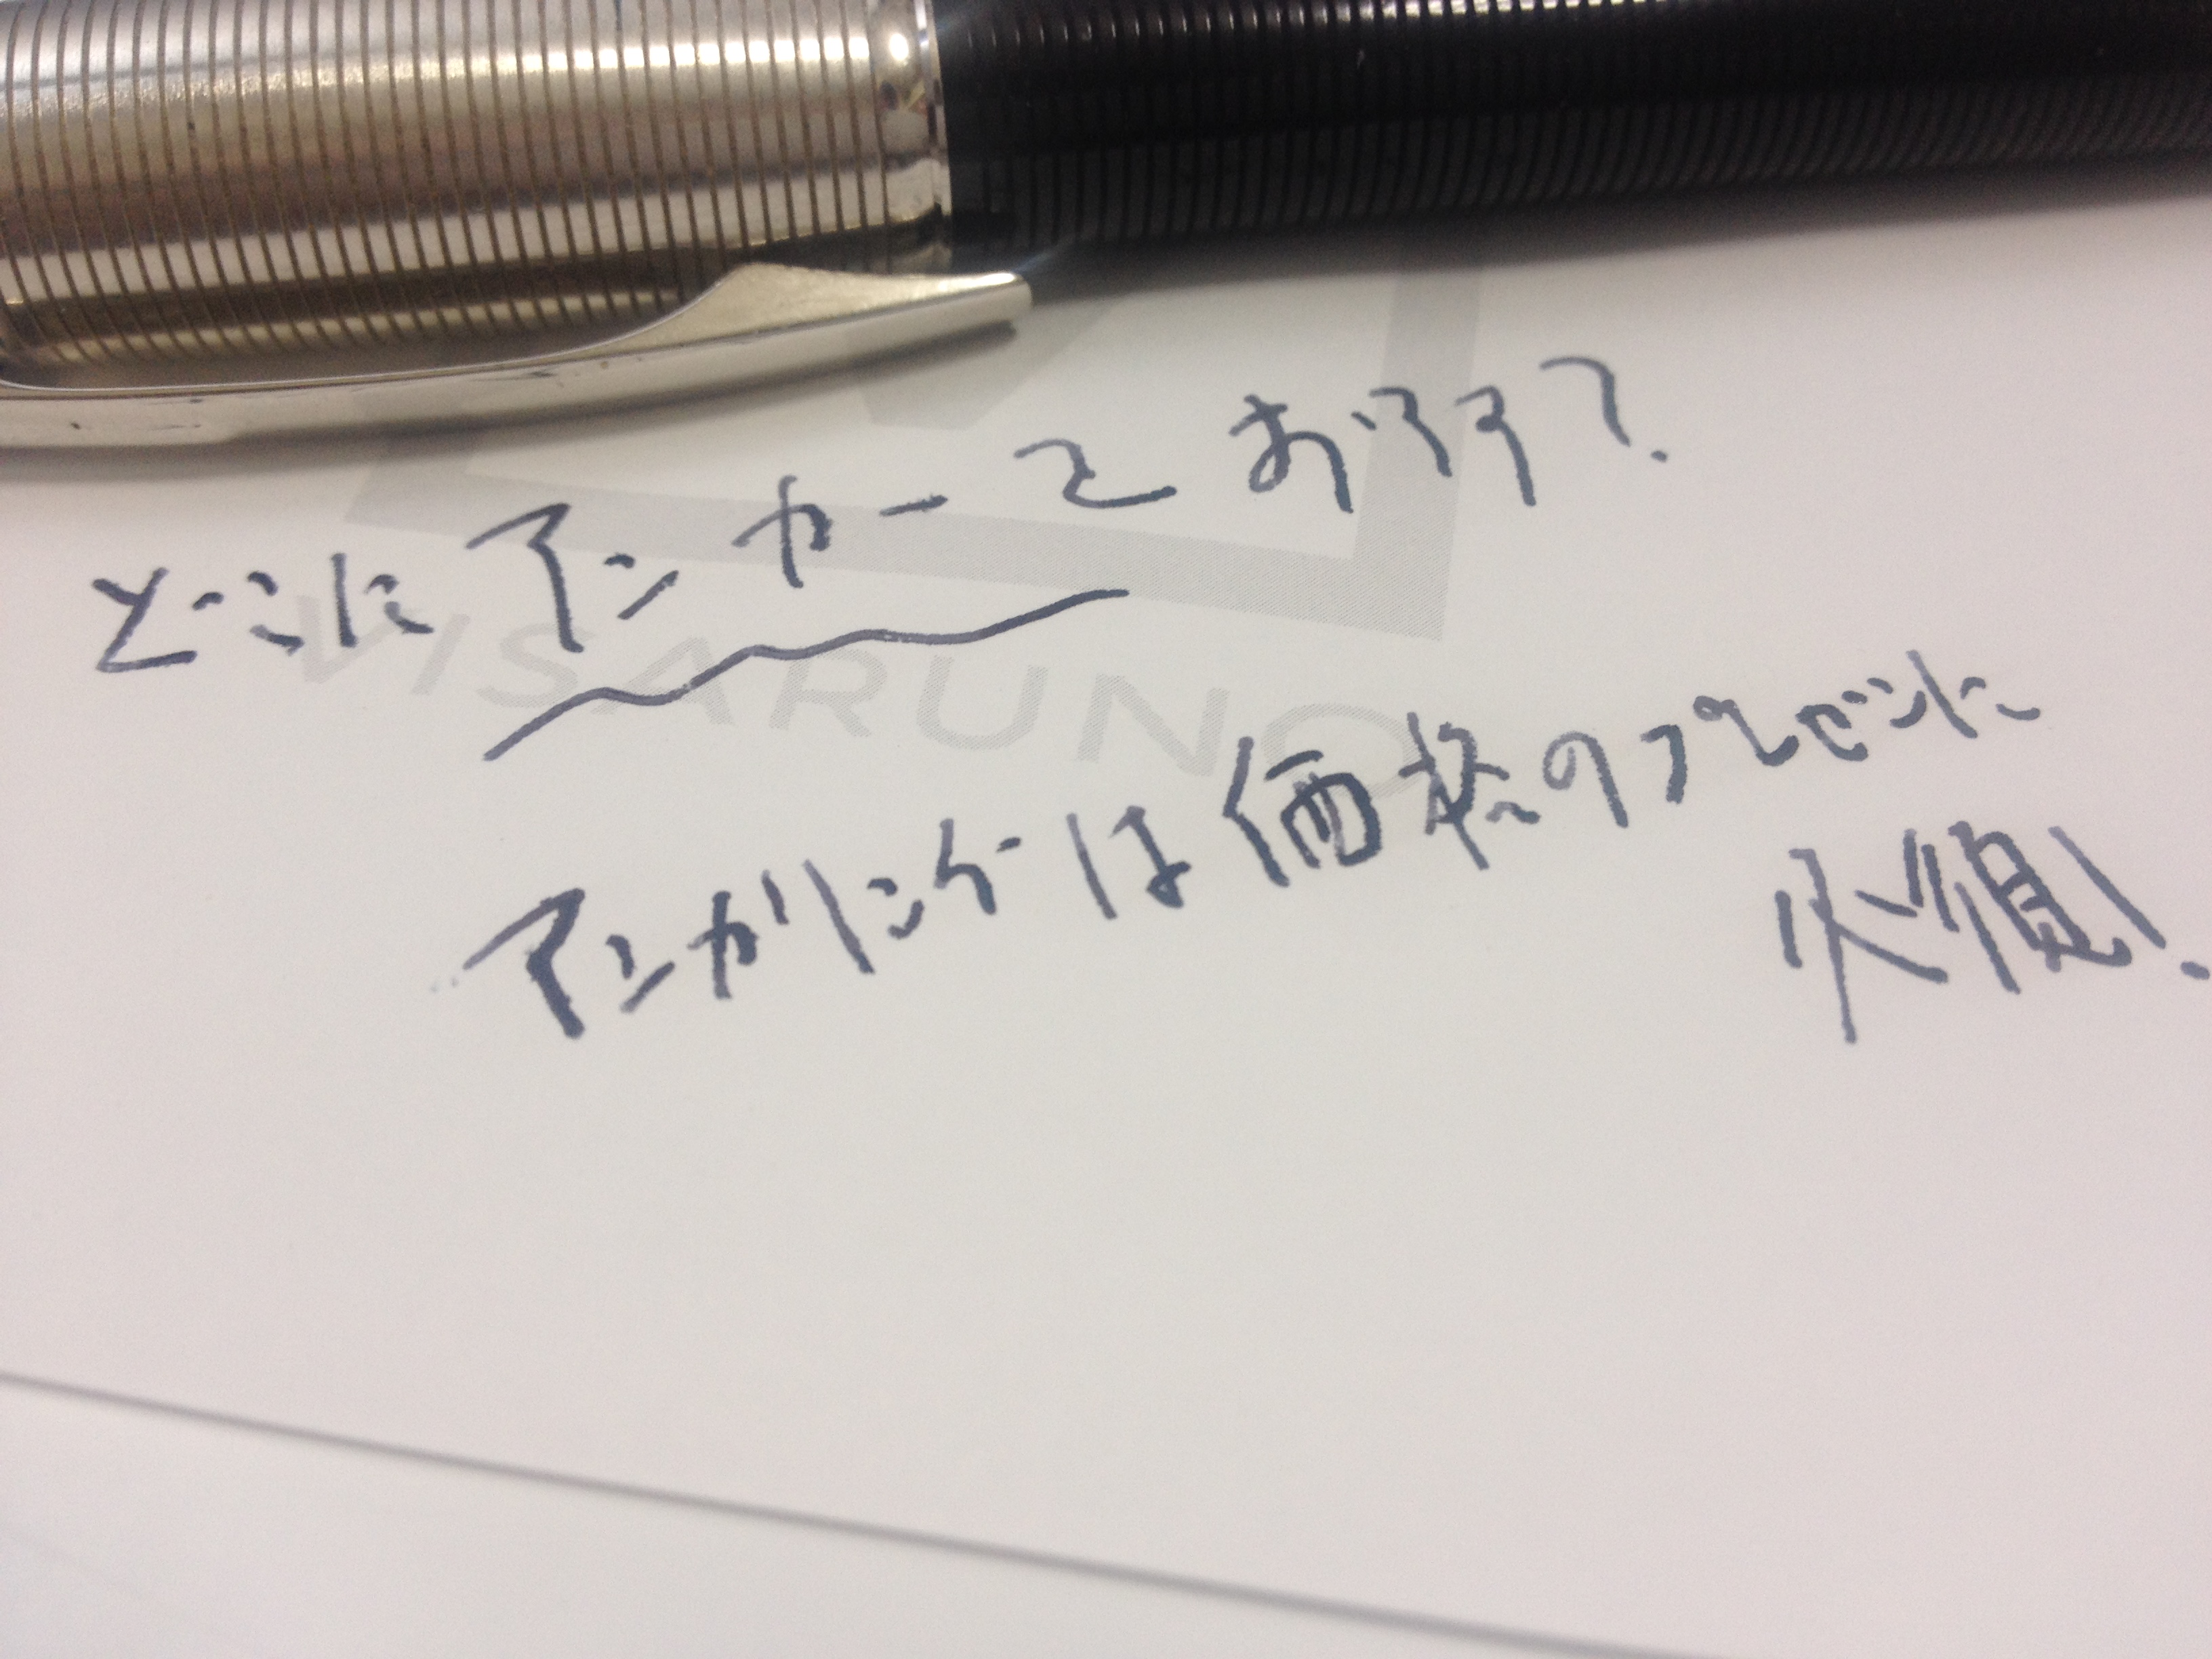 どこにアンカーをおろす?
VISARUNO
アンカリングは価格のプレゼンに
必須!